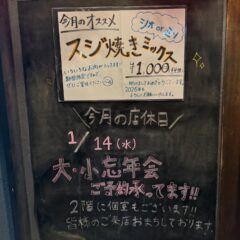 今月のオススメ
シオ or ミソ
スジ焼きミックス
¥1,000
今月の店休日
1/14(水)
大・小忘年会
ご予約承ってます!!
2階に個室もございます!!
皆様のご来店お待ちしております。